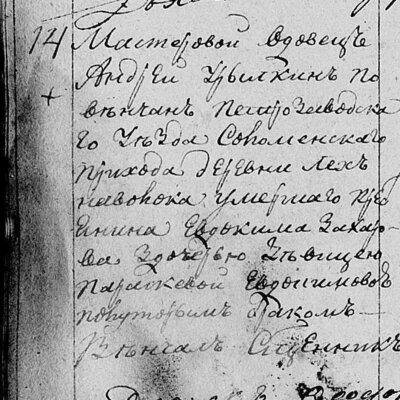 14 Мастеровой вдовецъ
Андрей Урылкинъ по
вѣнчанъ Петрозаводска
го Уѣзда Соломенскаго
прихода деревни Лехъ
наволока умершаго Крес
янина Евдокима Захаро-
ва Здочерью Дѣвицею
Параскевой Евдокимовой
повторымъ бракомъ
Вѣнчалъ Священникъ